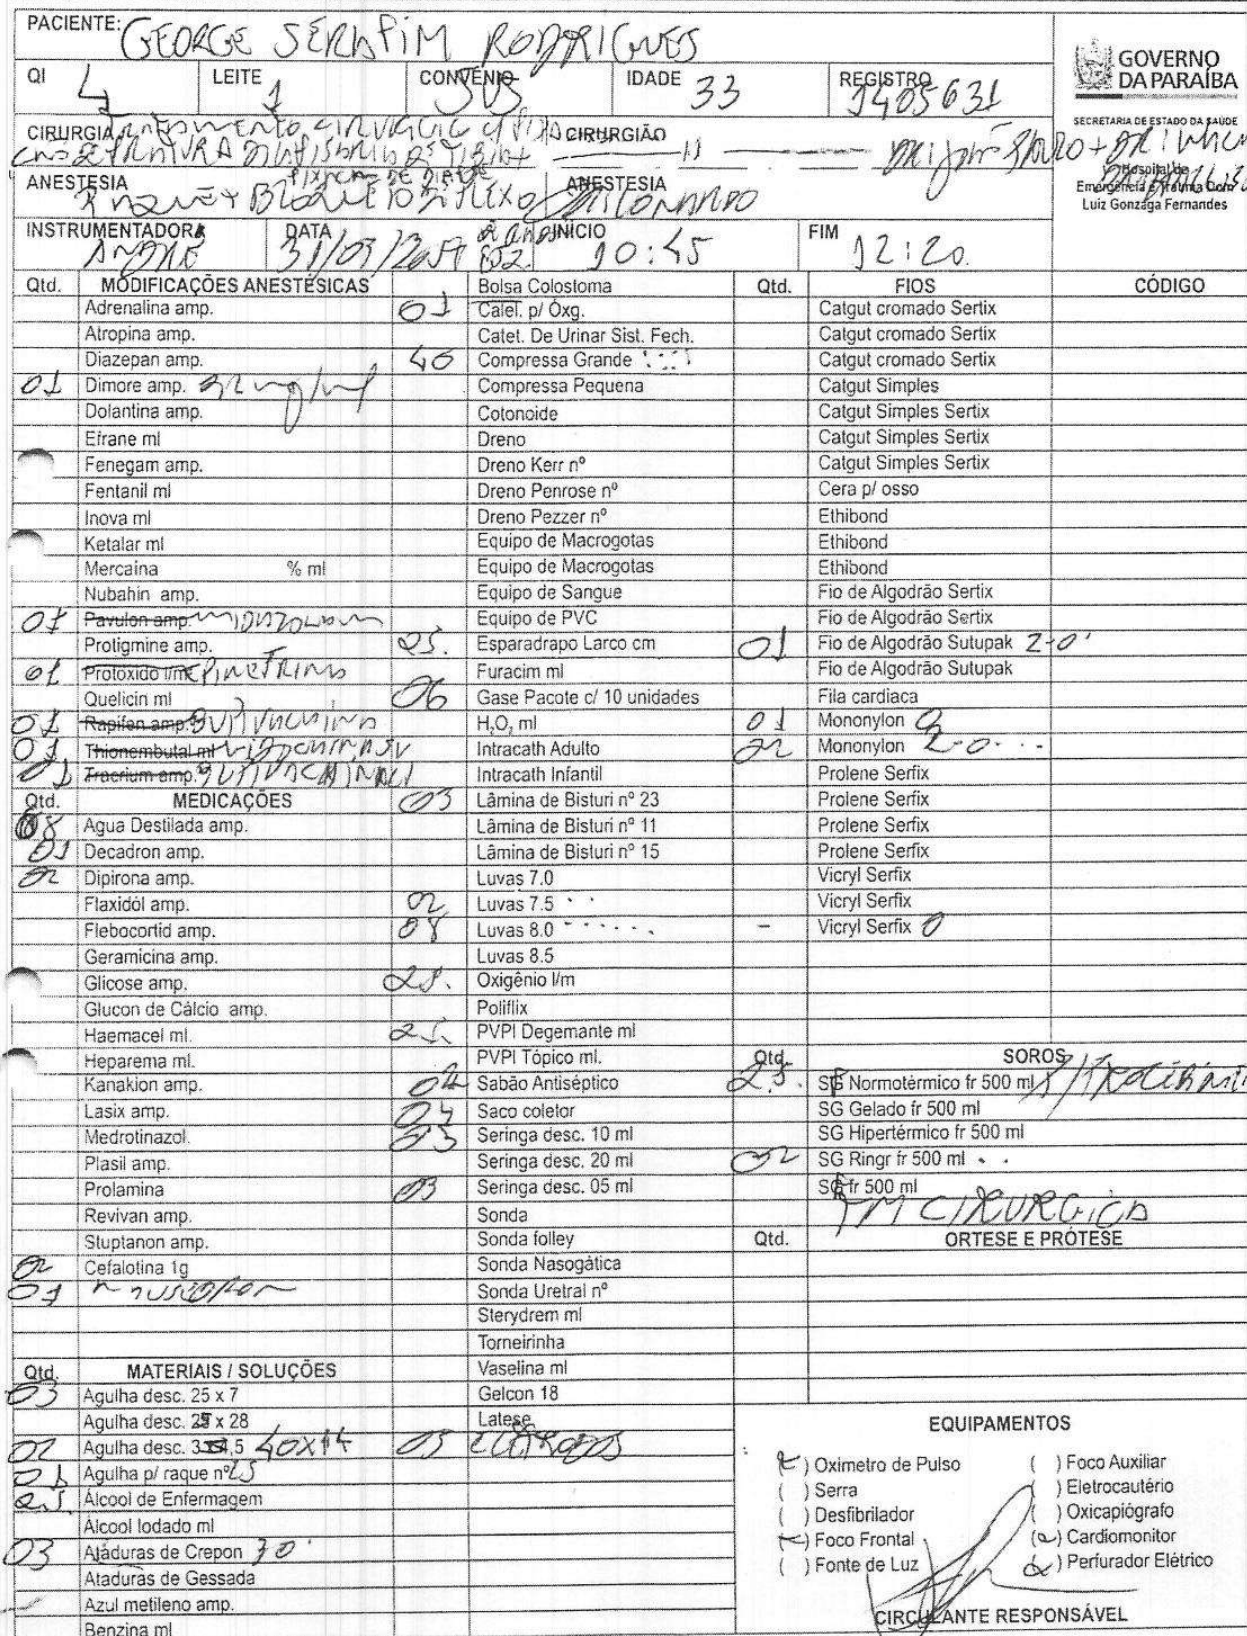 PACIENTE: GEORGE SERAFIM RODRIGUES
GOVERNO
DA PARAÍBA
SECRETARIA DE ESTADO DA SAÚDE
Hospital de
Emergência e Trauma Dom
Luiz Gonzaga Fernandes
QI 4 LEITE 1 CONVÊNIO SUS IDADE 33 REGISTRO 1405631
CIRURGIA CIRURGIÃO
ANESTESIA ANESTESIA
INSTRUMENTADORA ANDRE DATA INÍCIO 10:45 FIM 12:20
Qtd. MODIFICAÇÕES ANESTÉSICAS
Adrenalina amp.
Atropina amp.
Diazepan amp.
01 Dimore amp. 0,2 mg/ml
Dolantina amp.
Efrane ml
Fenegam amp.
Fentanil ml
Inova ml
Ketalar ml
Mercaina % ml
Nubahin amp.
01 Pavulon amp.
Protigmine amp.
01 Protoxido l/m
Quelicin ml
01 Rapifen amp.
01 Thionembutal ml
01 Tracrium amp.
Qtd. MEDICAÇÕES
08 Agua Destilada amp.
01 Decadron amp.
02 Dipirona amp.
Flaxidól amp.
Flebocortid amp.
Geramicina amp.
Glicose amp.
Glucon de Cálcio amp.
Haemacel ml.
Heparema ml.
Kanakion amp.
Lasix amp.
Medrotinazol.
Plasil amp.
Prolamina
Revivan amp.
Stuptanon amp.
02 Cefalotina 1g
01
Qtd. MATERIAIS / SOLUÇÕES
03 Agulha desc. 25 x 7
Agulha desc. 25 x 28
02 Agulha desc. 40x14
01 Agulha p/ raque nº 25
Álcool de Enfermagem
Álcool Iodado ml
03 Ataduras de Crepon 30
Ataduras de Gessada
Azul metileno amp.
Benzina ml
Bolsa Colostoma
01 Catet. p/ Óxg.
Catet. De Urinar Sist. Fech.
40 Compressa Grande
Compressa Pequena
Cotonoide
Dreno
Dreno Kerr nº
Dreno Penrose nº
Dreno Pezzer nº
Equipo de Macrogotas
Equipo de Macrogotas
Equipo de Sangue
Equipo de PVC
25. Esparadrapo Larco cm
Furacim ml
06 Gase Pacote c/ 10 unidades
H₂O₂ ml
Intracath Adulto
Intracath Infantil
03 Lâmina de Bisturi nº 23
Lâmina de Bisturi nº 11
Lâmina de Bisturi nº 15
Luvas 7.0
02 Luvas 7.5
08 Luvas 8.0
Luvas 8.5
Oxigênio l/m
Poliflix
PVPI Degemante ml
PVPI Tópico ml.
Sabão Antiséptico
Saco coletor
03 Seringa desc. 10 ml
Seringa desc. 20 ml
03 Seringa desc. 05 ml
Sonda
Sonda folley
Sonda Nasogática
Sonda Uretral nº
Sterydrem ml
Torneirinha
Vaselina ml
Gelcon 18
Latese
05 ELETRODOS
Qtd. FIOS CÓDIGO
Catgut cromado Sertix
Catgut cromado Sertix
Catgut cromado Sertix
Catgut Simples
Catgut Simples Sertix
Catgut Simples Sertix
Catgut Simples Sertix
Cera p/ osso
Ethibond
Ethibond
Ethibond
Fio de Algodrão Sertix
Fio de Algodrão Sertix
01 Fio de Algodrão Sutupak 2-0
Fio de Algodrão Sutupak
Fila cardiaca
01 Mononylon
02 Mononylon 2-0
Prolene Serfix
Prolene Serfix
Prolene Serfix
Prolene Serfix
Vicryl Serfix
Vicryl Serfix
- Vicryl Serfix 0
Qtd. SOROS
Normotérmico fr 500 ml
SG Gelado fr 500 ml
SG Hipertérmico fr 500 ml
02 SG Ringr fr 500 ml
fr 500 ml
CIRURGICA
Qtd. ORTESE E PRÓTESE
EQUIPAMENTOS
Oximetro de Pulso
( ) Serra
( ) Desfibrilador
Foco Frontal
( ) Fonte de Luz
( ) Foco Auxiliar
( ) Eletrocautério
( ) Oxicapiógrafo
Cardiomonitor
Perfurador Elétrico
CIRCULANTE RESPONSÁVEL